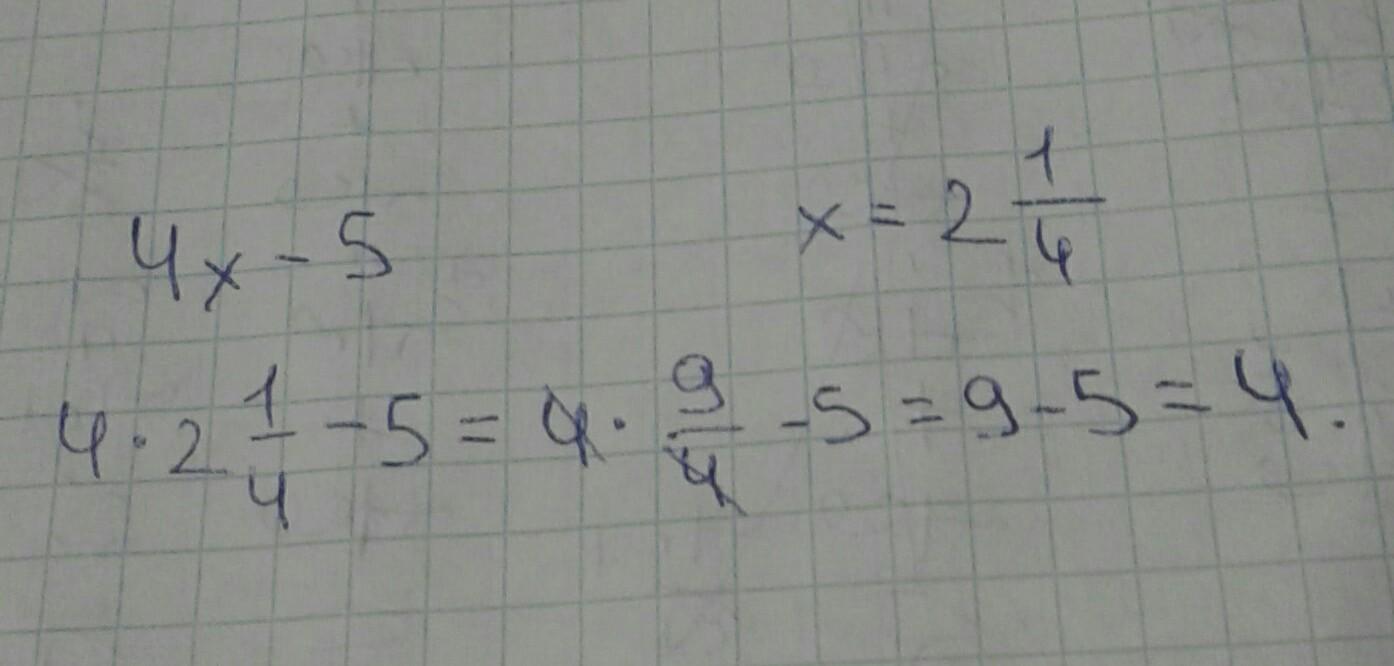 4x - 5    x = 2 1/4
4 · 2 1/4 - 5 = 4 · 9/4 - 5 = 9 - 5 = 4.